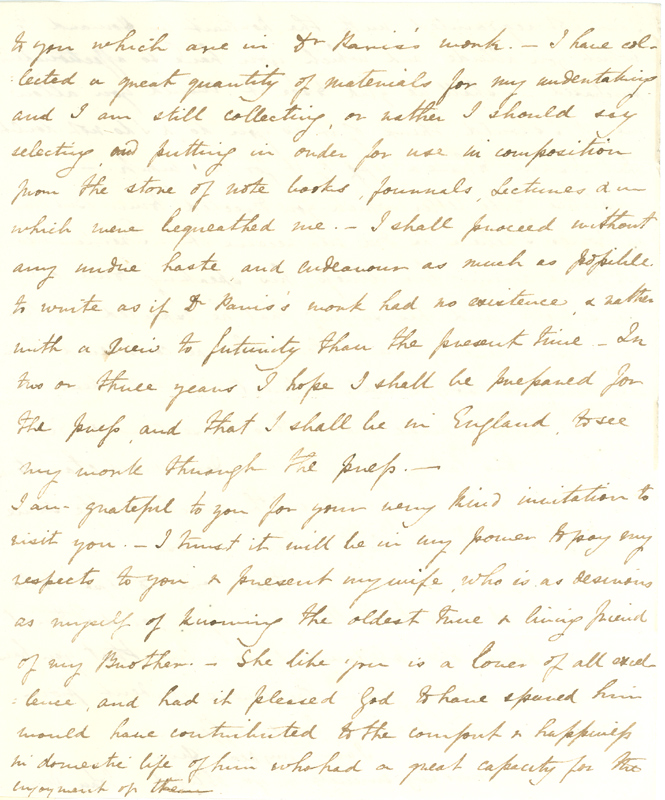 to you which are in Dr Paris's work. – I have col-
lected a great quantity of materials for my undertaking
and I am still collecting, or rather I should say
selecting and putting in order for use in composition
from the store of note books, Journals, Lectures &c
which were bequeathed me. – I shall proceed without
any undue haste and endeavour as much as possible
to write as if Dr Paris's work had no existence, & rather
with a view to futurity than the present time – In
two or three years I hope I shall be prepared for
the press, and that I shall be in England, to see
my work through the press. –
I am grateful to you for your very kind invitation to
visit you. – I trust it will be in my power to pay my
respects to you & present my wife, who is as desirous
as myself of knowing the oldest true & living friend
of my Brother. – She like you is a lover of all excel-
lence, and had it pleased God to have spared him
would have contributed to the comfort & happiness
in domestic life of him who had a great capacity for the
enjoyment of them